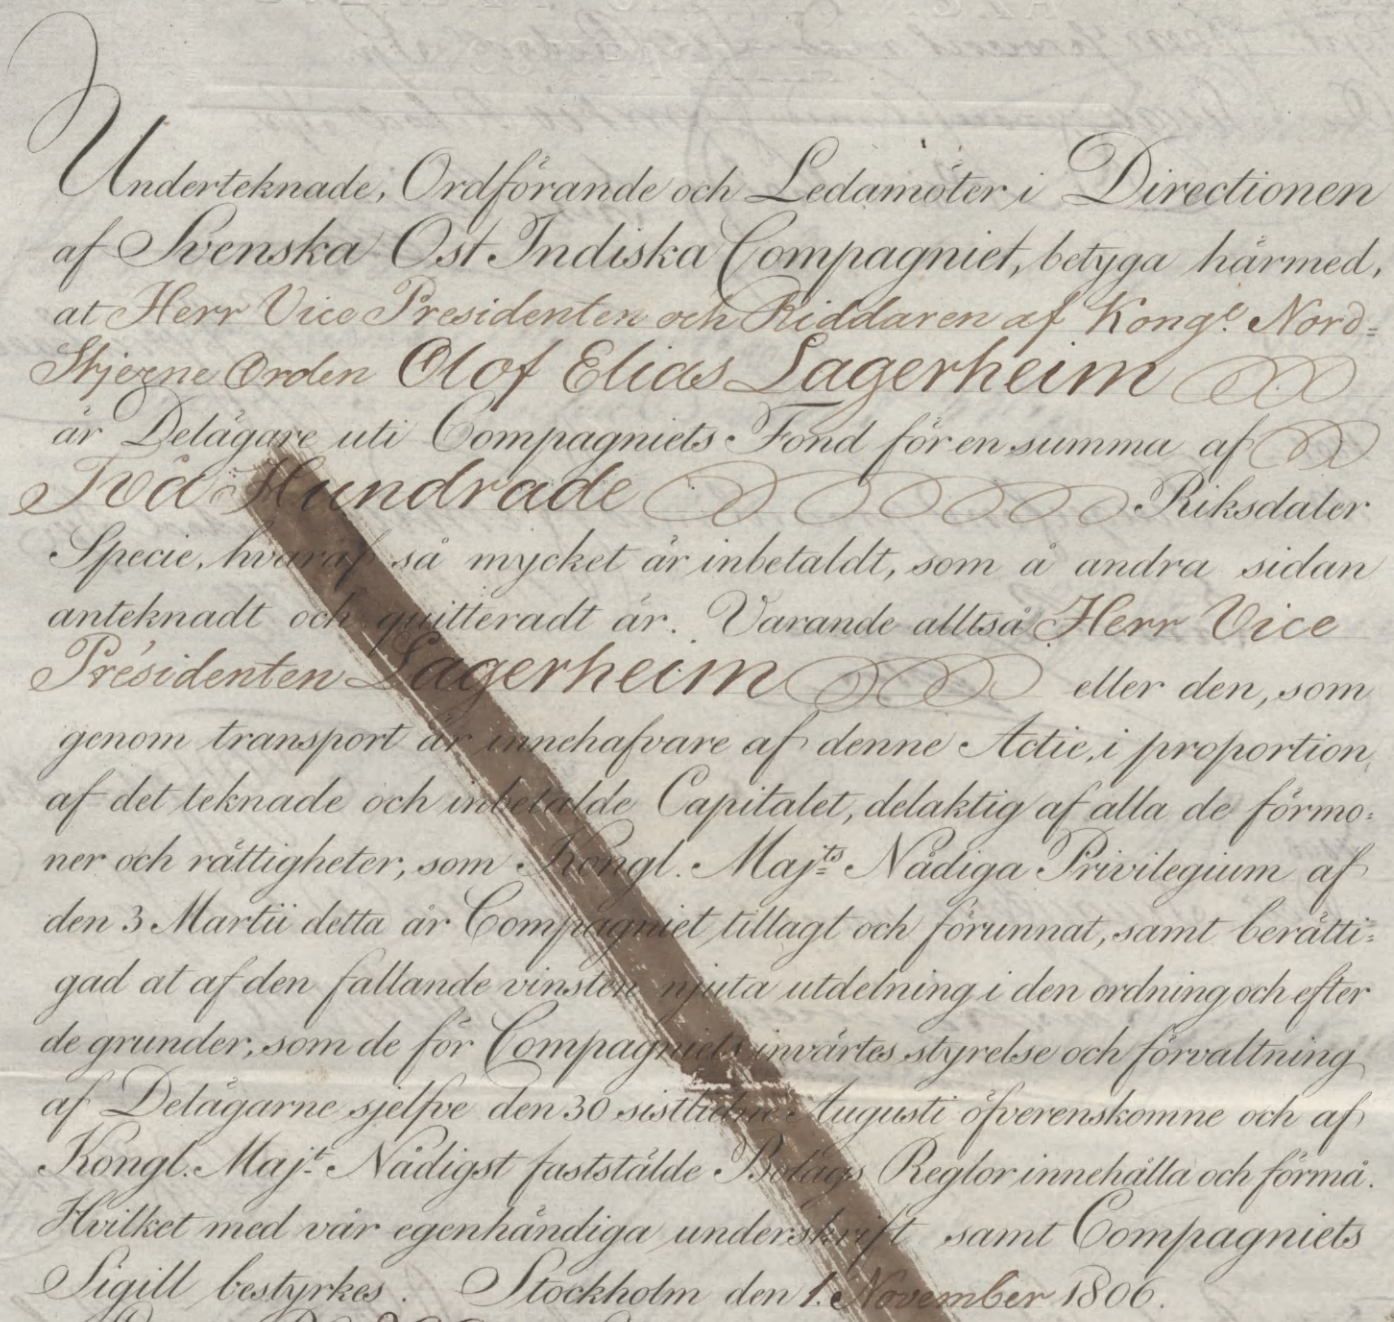 Underteknade, Ordförande och Ledamöter i Directionen
af Svenska Ost Indiska Compagniet, betyga härmed,
at Herr Vice Presidenten och Riddaren af Kongl. Nord=
Stjerne Orden Olof Elias Lagerheim
är Delägare uti Compagniets Fond för en summa af
Två Hundrade Riksdaler
Specie, hvaraf så mycket är inbetaldt, som å andra sidan
anteknadt och quitteradt är. Varande alltså Herr Vice
Presidenten Lagerheim eller den, som
genom transport är innehafvare af denne Actie, i proportion
af det teknade och inbetalde Capitalet, delaktig af alla de förmo=
ner och rättigheter, som Kongl. Maj:ts Nådiga Privilegium af
den 3 Martii detta år Compagniet tillagt och förunnat, samt berätti=
gad at af den fallande vinsten njuta utdelning i den ordning och efter
de grunder, som de för Compagniets invärtes styrelse och förvaltning
af Delägarne sjelfve den 30 sistlidne Augusti öfverenskomne och af
Kongl. Maj:t Nådigst faststälde Bolags Reglor innehålla och förmå.
Hvilket med vår egenhändiga underskrift samt Compagniets
Sigill bestyrkes. Stockholm den 1. November 1806.